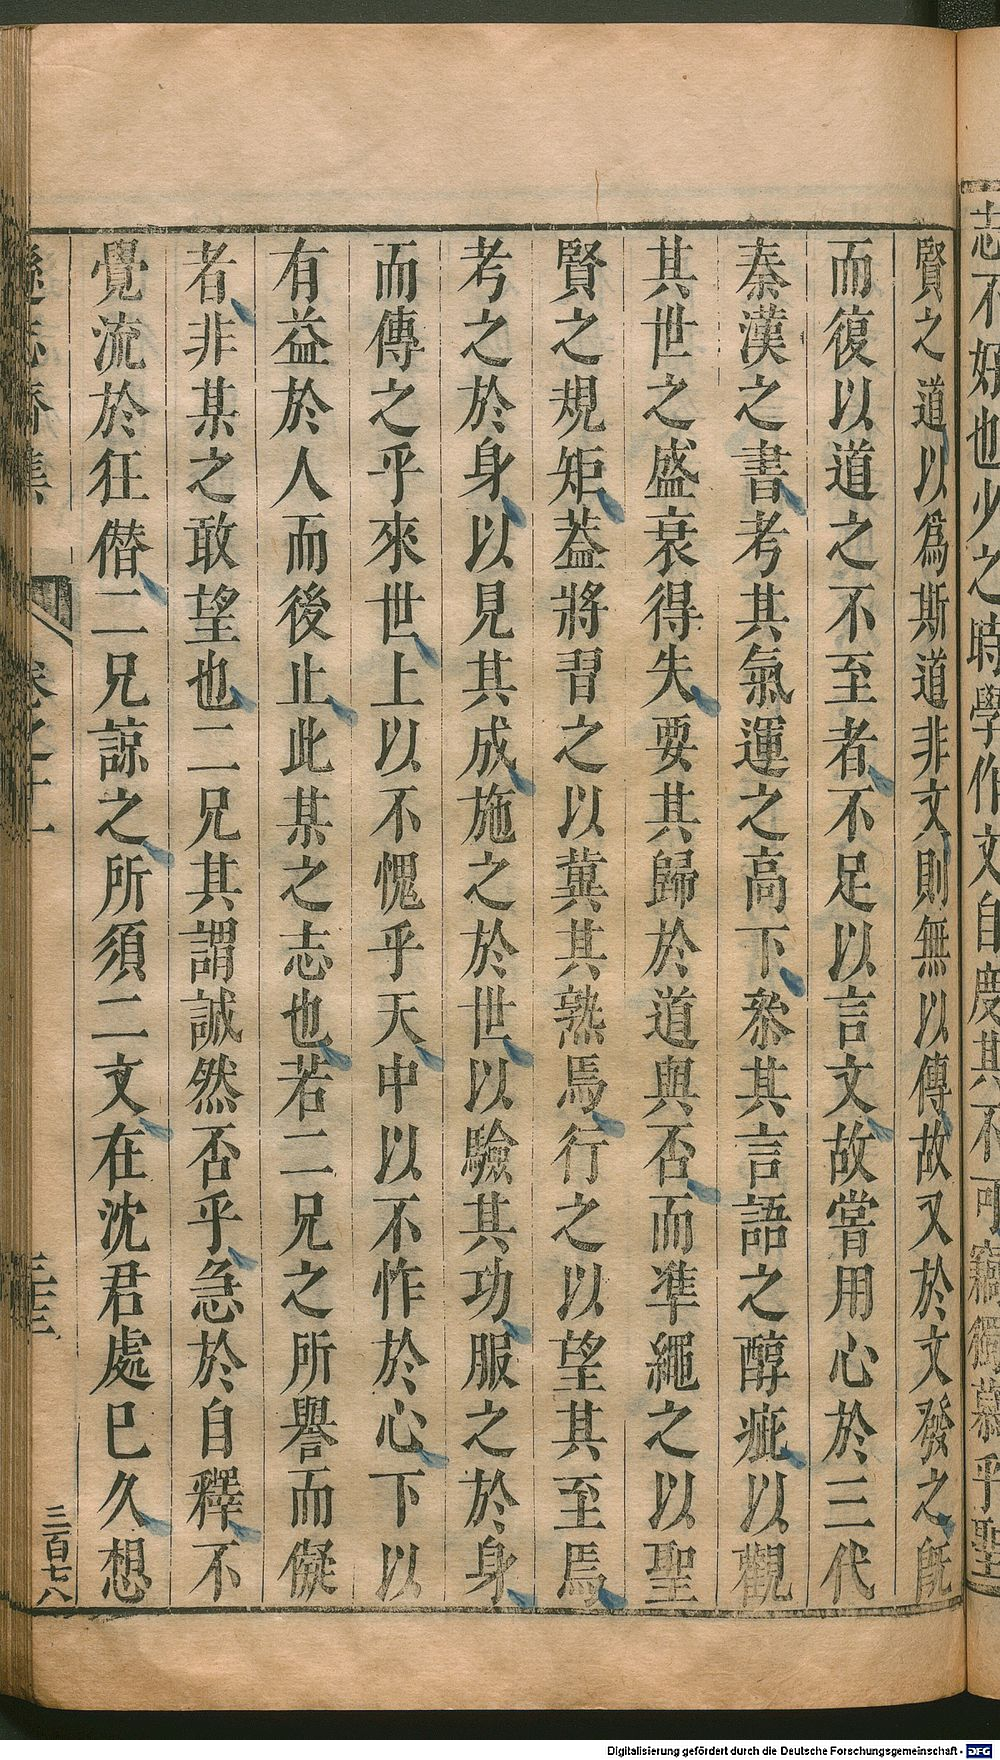 志不好也少之時學作文自度其不可竊獨慕乎聖
賢之道以爲斯道非文則無以傳故又於文發之旣
而復以道之不至者不足以言文故嘗用心於三代
秦漢之書考其氣運之高下叅其言語之醇疵以觀
其世之盛衰得失要其歸於道與否而準繩之以聖
賢之規矩葢將習之以冀其熟焉行之以望其至焉
考之於身以見其成施之於世以驗其功服之於身
而傳之乎來世上以不愧乎天中以不怍於心下以
有益於人而後止此某之志也若二兄之所譽而儗
者非某之敢望也二兄其謂誠然否乎急於自釋不
覺流於狂僭二兄諒之所須二文在沈君處已久想
遜志齋集 卷之十一 三十三 三百七八
Digitalisierung gefördert durch die Deutsche Forschungsgemeinschaft - DFG